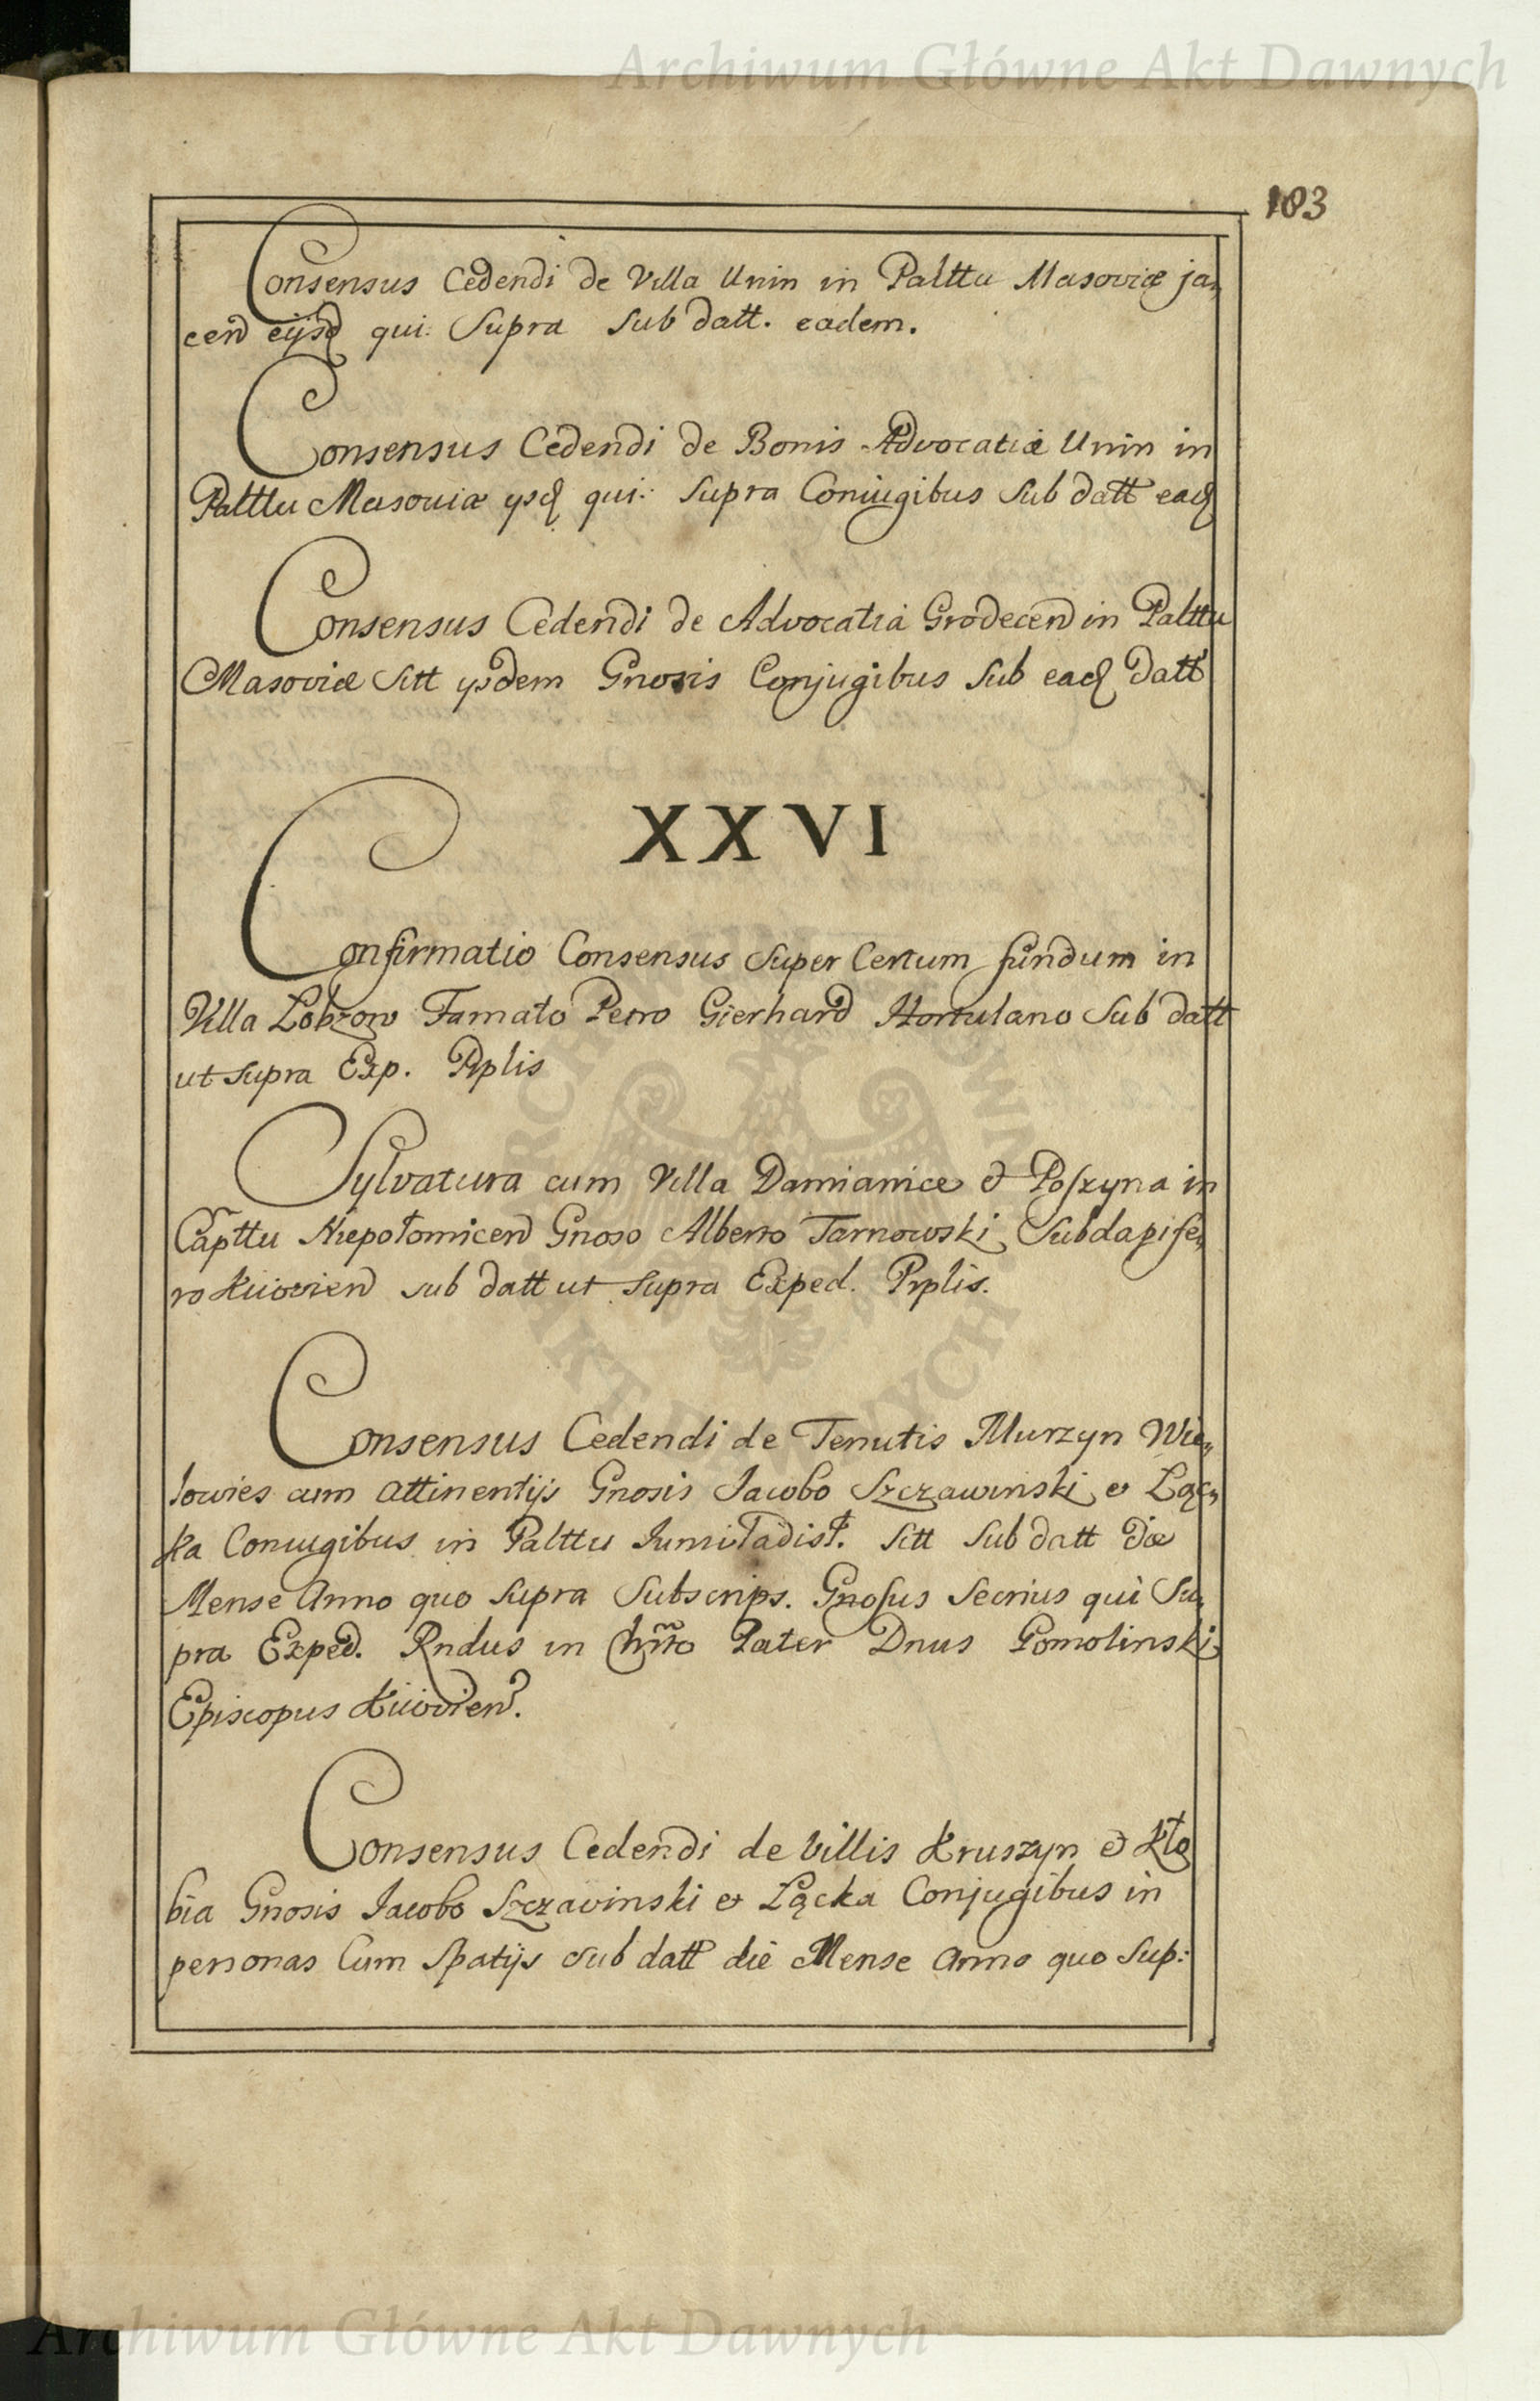 Archiwum Główne Akt Dawnych
103
Consensus Cedendi de Villa Unin in Palttu Masoviæ ja,
cen eijsd qui: Supra Sub datt. eadem.
Consensus Cedendi de Bonis Advocatiæ Unin in
Palttu Masoviæ ysd qui: Supra Coniugibus Sub datt ead
Consensus Cedendi de Advocatia Grodecen in Palttu
Masoviæ Sitt ysdem Gnosis Conjugibus Sub ead datt
XXVI
Confirmatio Consensus Super Certum fundum in
Villa Lobzow Famato Petro Gierhard Hortulano Sub datt
ut Supra Exp. Prplis
Sylvatura cum Villa Damianice et Poszyna in
Capttu Niepołomicen Gnoso Alberto Tarnowski Subdapife,
ro Kiiovien sub datt ut Supra Exped. Prplis.
Consensus Cedendi de Tenutis Murzyn Wie,
lowies cum attinentijs Gnosis Jacobo Szczawinski et Łąc,
ka Coniugibus in Palttu Sitt Sub datt die
Mense Anno quo Supra Subscrips. Gnosus Secrius qui Su,
pra Exped. Rndus in Chrto Pater Dnus Gomolinski
Episcopus Kiiovien.
Consensus Cedendi de Villis Kruszyn et Kło
bia Gnosis Jacobo Szczavinski et Łącka Conjugibus in
personas Cum Spatijs Sub datt die Mense Anno quo Sup:
Archiwum Główne Akt Dawnych